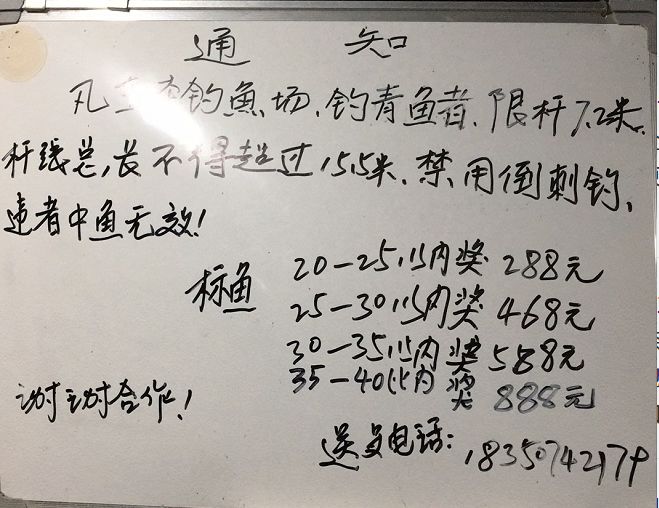 通 知
凡钓鱼场、钓青鱼者、限杆7.2米、
杆线总长不得超过15.5米、禁用倒刺钓、
违者中鱼无效!
标鱼
20-25以内奖288元
25-30以内奖468元
30-35以内奖588元
35-40以内奖888元
谢谢合作!
送鱼电话: